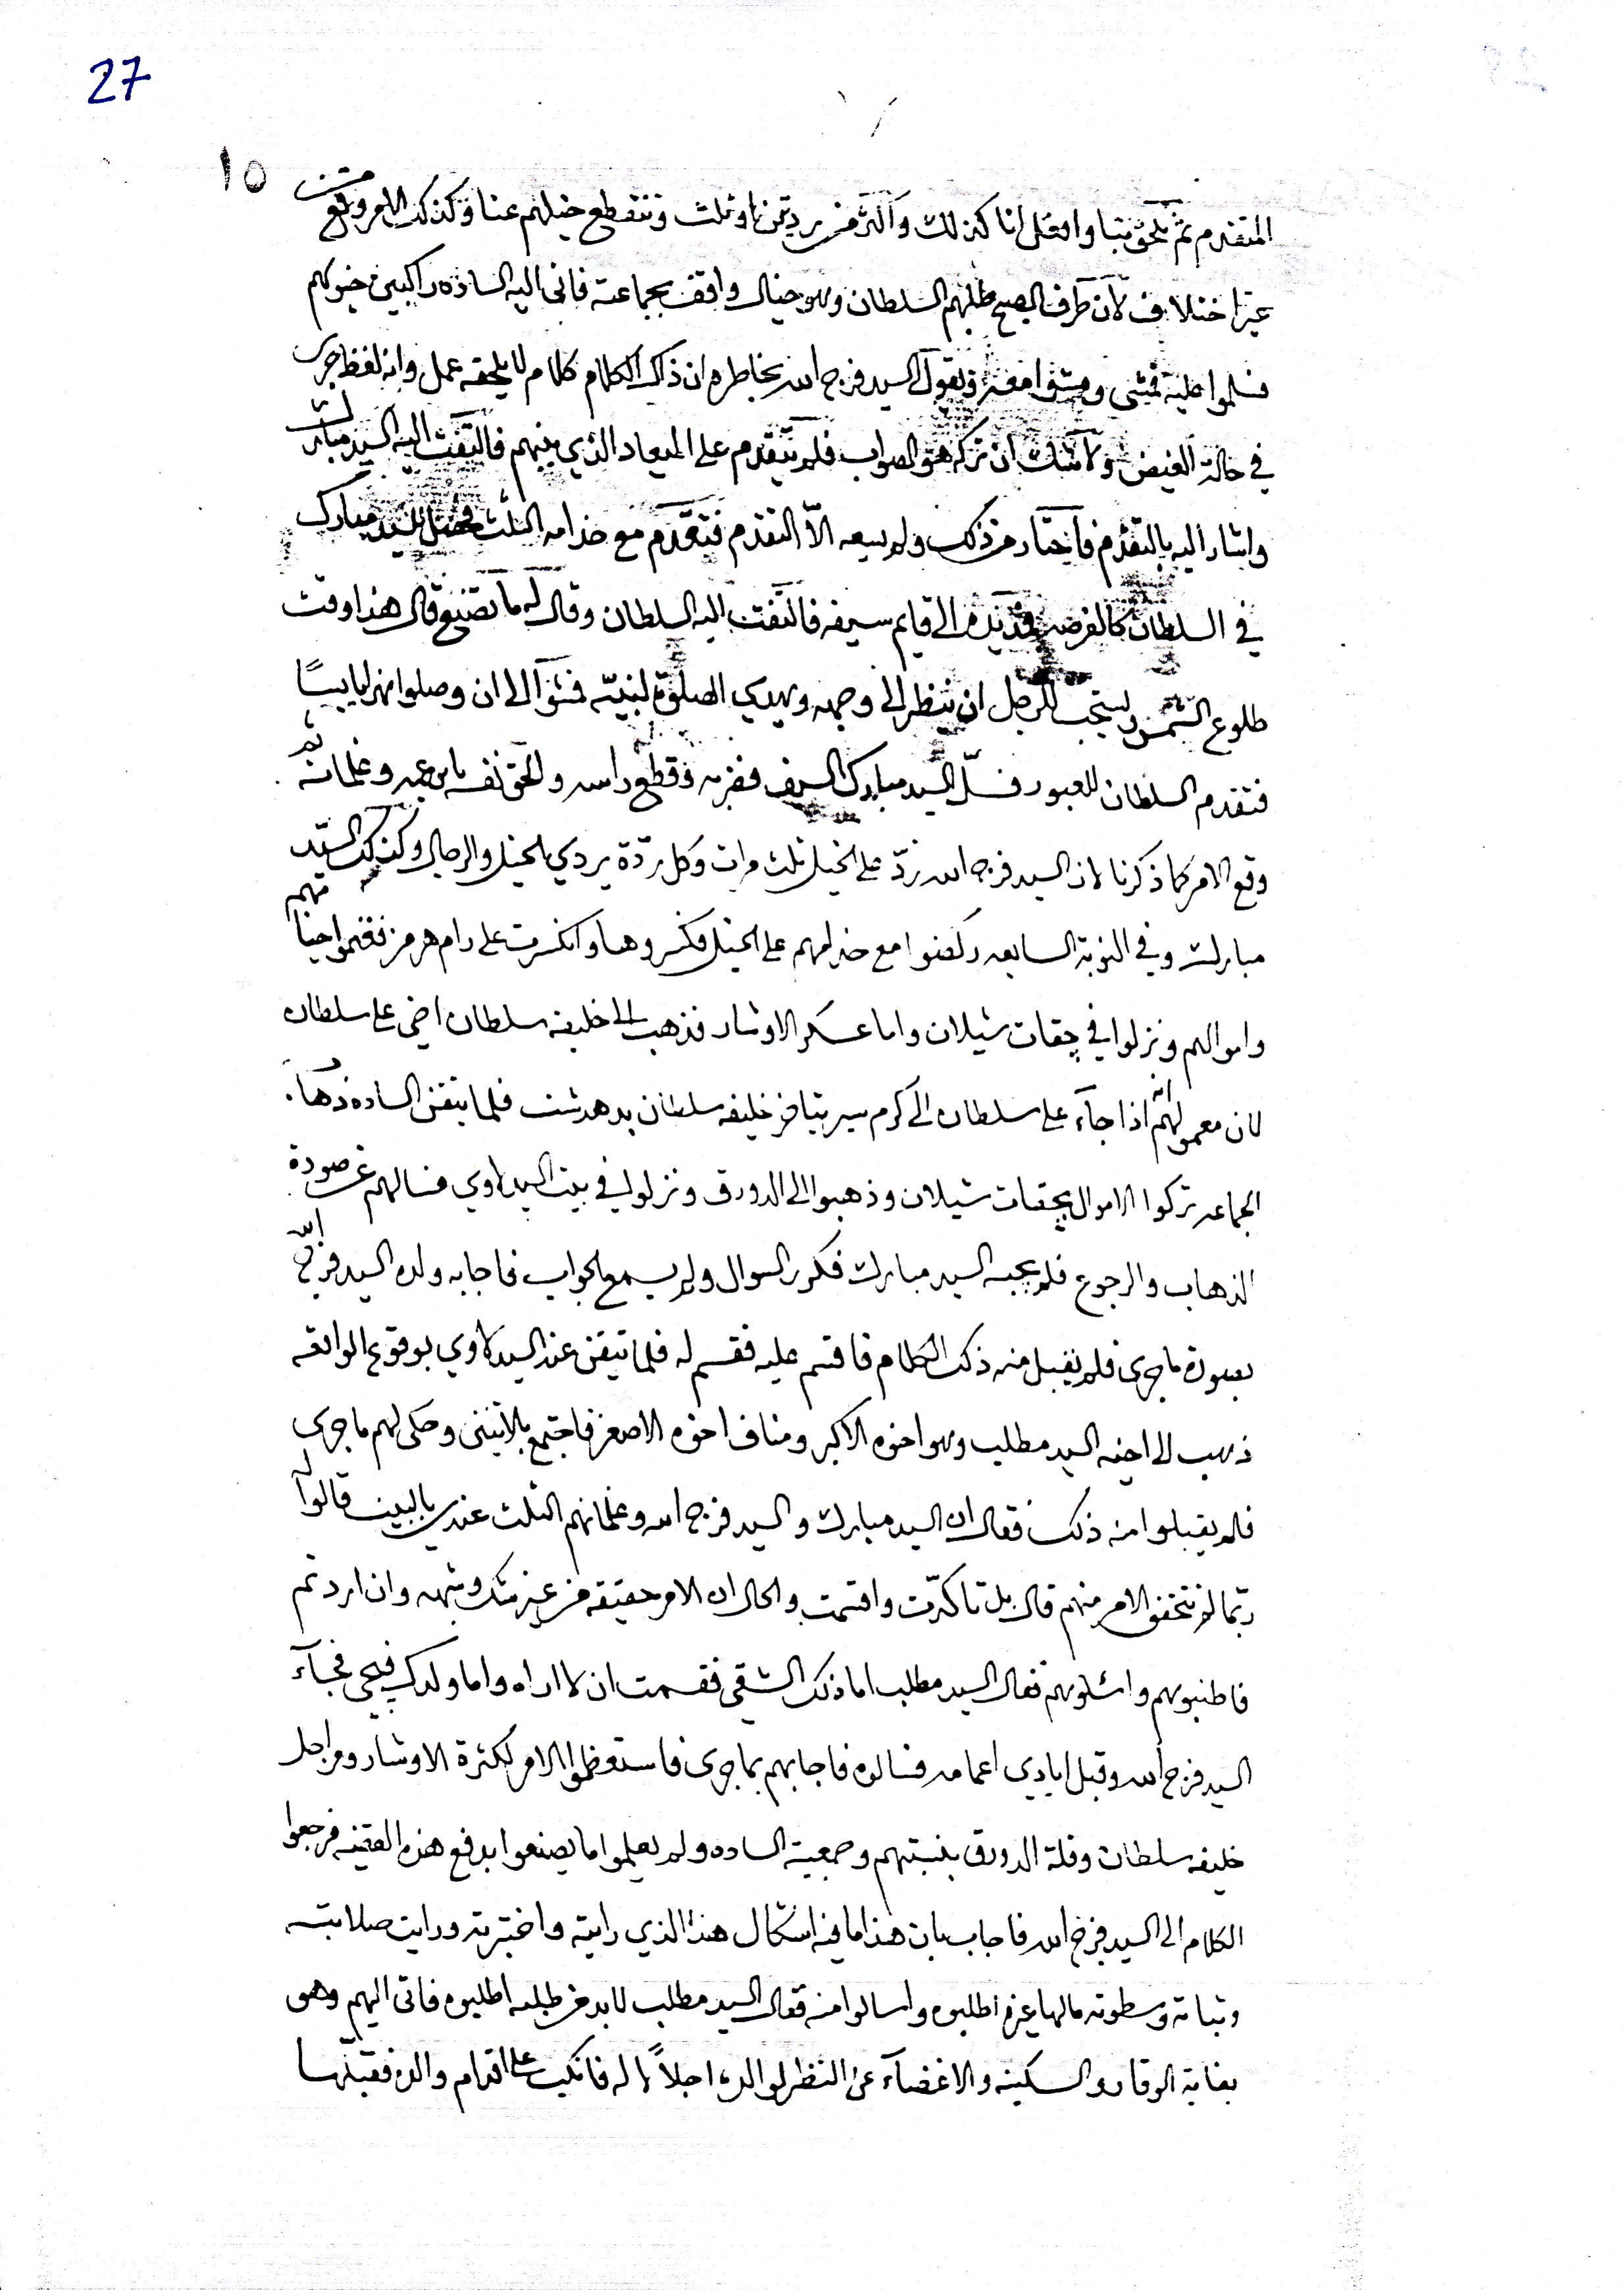 27
١٥
المتقدم ثم تلحق بنا وافعل انا كذلك واكثر من ردتين او ثلث وتنقطع خيلهم عنا وكذلك الامر وقع من
غير اختلاف لان طرف الصبح طلبهم السلطان وهو خيال واقف بجماعته فاتى اليه الساده راكبين خيولهم
فسلموا عليه فمشى ومشوا معه ويقول السيد فرج الله بخاطره ان ذلك الكلام كلام لا يلحقه عمل وانه لفظ جرى
في حالة الغيض ولا شك ان تركه هو الصواب فلم يتقدم على الميعاد الذي بينهم فالتفت اليه السيد مبارك
واشار اليه بالتقدم من ذلك ولم يسعه الا التقدم فتقدم مع خدامه الثلث فحصل للسيد مبارك
في السلطان كالفرصه يده الى قايم سيفه فالتفت اليه السلطان وقال له ما تصنع قال هذا وقت
طلوع الشمس ويستحب للرجل ان ينظر الى وجهه ويهدي الصلوة لنبيه فمشوا الى ان وصلوا نهرا يابسًا
فتقدم السلطان للعبور فسلّ السيد مبارك السيف فضربه وقطع راسه والحق نفسه بابن عمه وغلمانه ثم
وقع الامر كما ذكرنا لان السيد فرج الله ردّ على الخيل ثلث مرات وكل ردّة يردي الخيل والرجال وكذلك السيّد
مبارك وفي النوبة السابعه ركضوا مع خدامهم على الخيل فكسروها وانكسرت على رام هرمز فغنموا
واموالهم ونزلوا في چقات شيلان واما عسكر الاوشار فذهب الى خليفه سلطان اخي علي سلطان
لان معمولهم انه اذا جاء علي سلطان الى كرم سير يتيافر خليفه سلطان بدهدشت فلما تيقن الساده
الجماعه تركوا الاموال بچقات شيلان وذهبوا الى الدورق ونزلوا في بيت السيد بداوي فسالهم عن صورة
الذهاب والرجوع فلم يجبه السيد مبارك فكرر السوال ولم يسمع الجواب فاجابه ولده السيد فرج الله
بصورة ما جرى فلم يقبل منه ذلك الكلام فاقسم عليه فقسم له فلما تيقن عند السيد بداوي بوقوع الواقعه
ذهب الى اخيه السيد مطلب وهو اخوه الاكبر ومناف اخوه الاصغر فاجتمع بالاثنين وحكى لهم ما جرى
فلم يقبلوا منه ذلك فقال ان السيد مبارك والسيد فرج الله وغلمانهم الثلث عندي بالبيت قالوا له
ربما لم تتحقق الامر منهم قال بل تاكدّت واقسمت والحال ان الامر حقيقه من غير شك وشبهه وان اردتم
فاطلبوهم واسئلوهم فقال السيد مطلب اما ذلك الشقي فقسمت ان لا اراه واما ولدك فيجي فجآء
السيد فرج الله وقبل ايادي اعمامه فسالوه فاجابهم بما جرى فاستعظموا الامر لكثرة الاوشار ومراجل
خليفه سلطان وقلة الدورق بنسبتهم وجمعية الساده ولم يعلموا ما يصنعوا بدفع هذه القضيه فرجعوا
الكلام الى السيد فرج الله فاجاب بان هذا ما فيه اشكال هذا الذي رايته واختبرته ورايت صلابته
وثباته وسطوته ما لها غيره اطلبوه واسالوا منه فقال السيد مطلب لا بد من طلبه اطلبوه فاتى اليهم وهو
بغاية الوقار والسكينه والاغضآء عن النظر لوالده اجلالًا له فانكب على اقدام والده فقبّلها